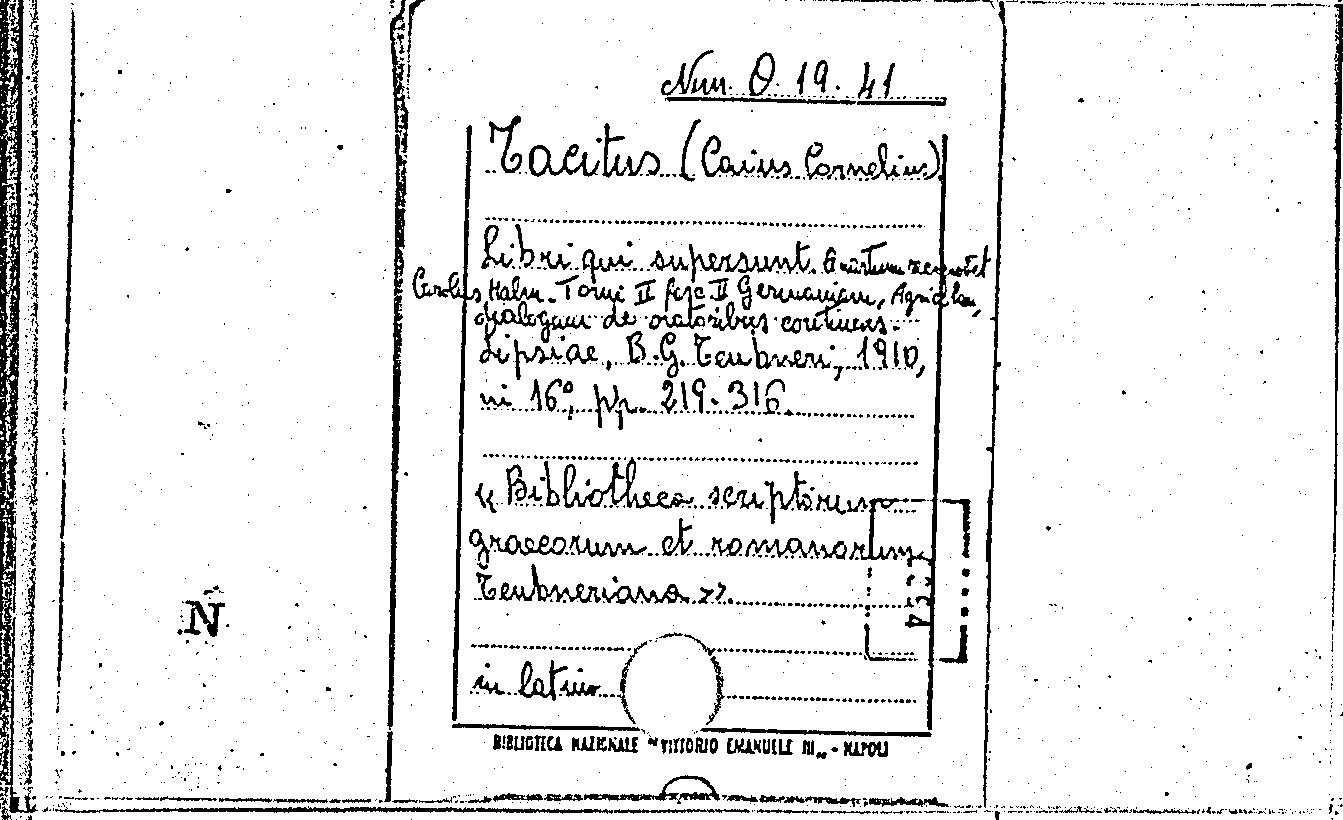 Num. O. 19. 41
Tacitus (Caius Cornelius)
Libri qui supersunt. Quartum recognovit
Carolus Halm. Tomi II fasc II Germaniam, Agricolam,
dialogum de oratoribus continens.
Lipsiae, B. G. Teubneri, 1910,
in 16°, pp. 219-316.
« Bibliotheca scriptorum
graecorum et romanorum
Teubneriana ».
in latino
N
BIBLIOTECA NAZIONALE "VITTORIO EMANUELE III„ - NAPOLI